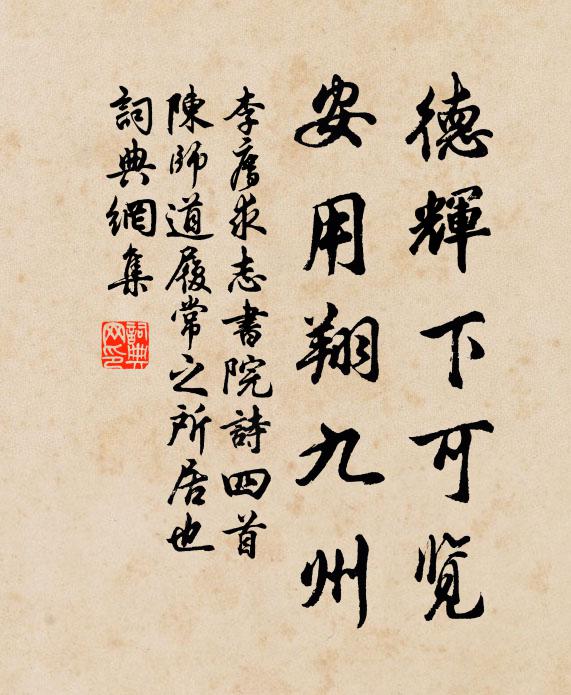 德輝下可覽
安用翔九州
李廌求志書院詩四首
陳師道履常之所居也
詞典網集
詞典網印